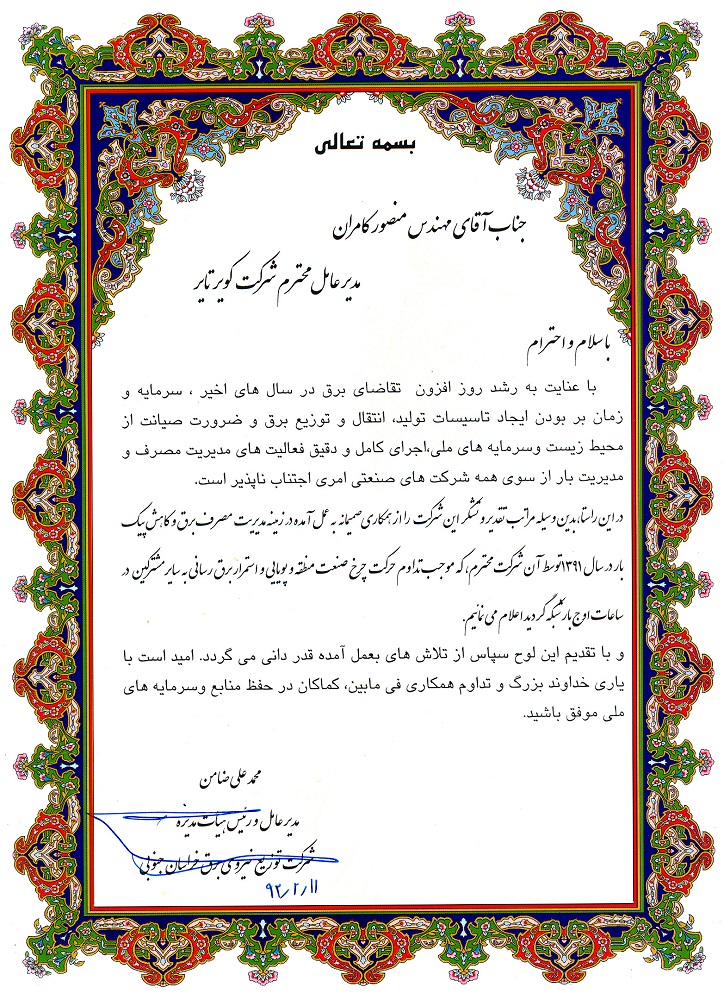 بسمه تعالی
جناب آقای مهندس منصور کامران
مدیر عامل محترم شرکت کویر تایر
با سلام و احترام
با عنایت به رشد روز افزون تقاضای برق در سال های اخیر ، سرمایه و
زمان بر بودن ایجاد تاسیسات تولید، انتقال و توزیع برق و ضرورت صیانت از
محیط زیست وسرمایه های ملی،اجرای کامل و دقیق فعالیت های مدیریت مصرف و
مدیریت بار از سوی همه شرکت های صنعتی امری اجتناب ناپذیر است.
در این راستا، بدین وسیله مراتب تقدیر و تشکر این شرکت را از همکاری صمیمانه به عمل آمده در زمینه مدیریت مصرف برق و کاهش پیک
بار در سال ۱۳۹۱ توسط آن شرکت محترم، که موجب تداوم حرکت چرخ صنعت منطقه و پویایی و استمرار برق رسانی به سایر مشترکین در
ساعات اوج بار شبکه گردید اعلام می نمائیم.
و با تقدیم این لوح سپاس از تلاش های بعمل آمده قدر دانی می گردد. امید است با
یاری خداوند بزرگ و تداوم همکاری فی مابین، کماکان در حفظ منابع وسرمایه های
ملی موفق باشید.
محمد علی ضامن
مدیر عامل و رئیس هیات مدیره
شرکت توزیع نیروی برق خراسان جنوبی
۹۲/۲/۱۱